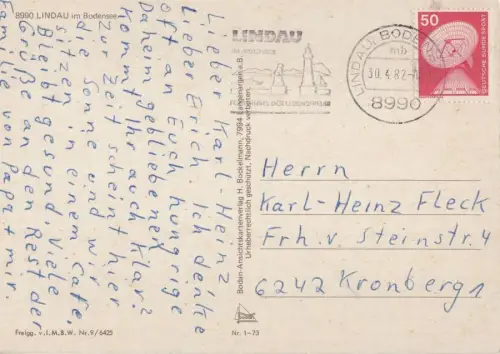 8990 LINDAU im Bodensee
Liebe Karl-Heinz
Lieber Erich. Ich denke
oft an Euch hungrige
Daheimgebliebene.
Kommt Ihr auch klar?
Zur Zeit scheint hier
die Sonne und wir
sitzen in einem Cafe.
Bleibt gesund. Viele
Grüße an den Rest der
Familie von Papa + mir.
Freigg. v. I. M. B. W. Nr. 9/6425
Bodan-Ansichtskartenverlag H. Bockelmann, 7994 Langenargen a. B.
Urheberrechtlich geschützt, Nachdruck verboten.
Nr. 1-73
LINDAU
LINDAU, BODENSEE
mb
30.4.82
8990
50
DEUTSCHE BUNDESPOST
Herrn
Karl-Heinz Fleck
Frh. v. Steinstr. 4
6242 Kronberg 1